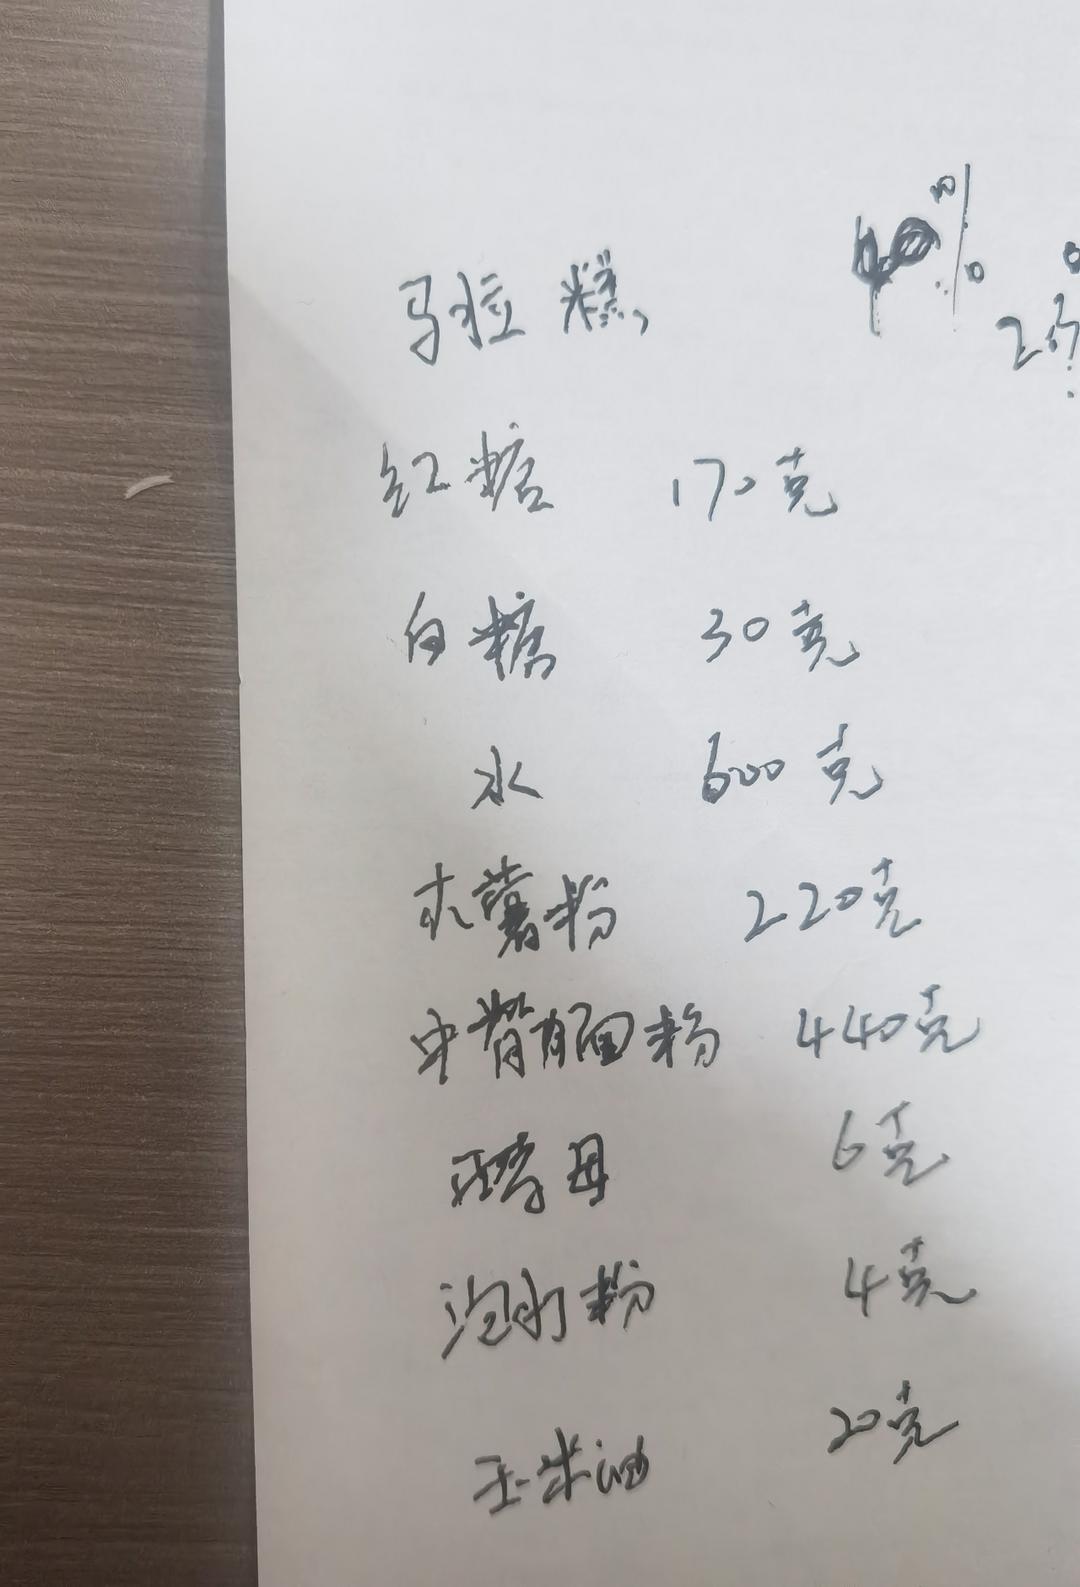 马拉糕
红糖 170克
白糖 30克
水 600克
木薯粉 220克
中筋面粉 440克
酵母 6克
泡打粉 4克
玉米油 20克